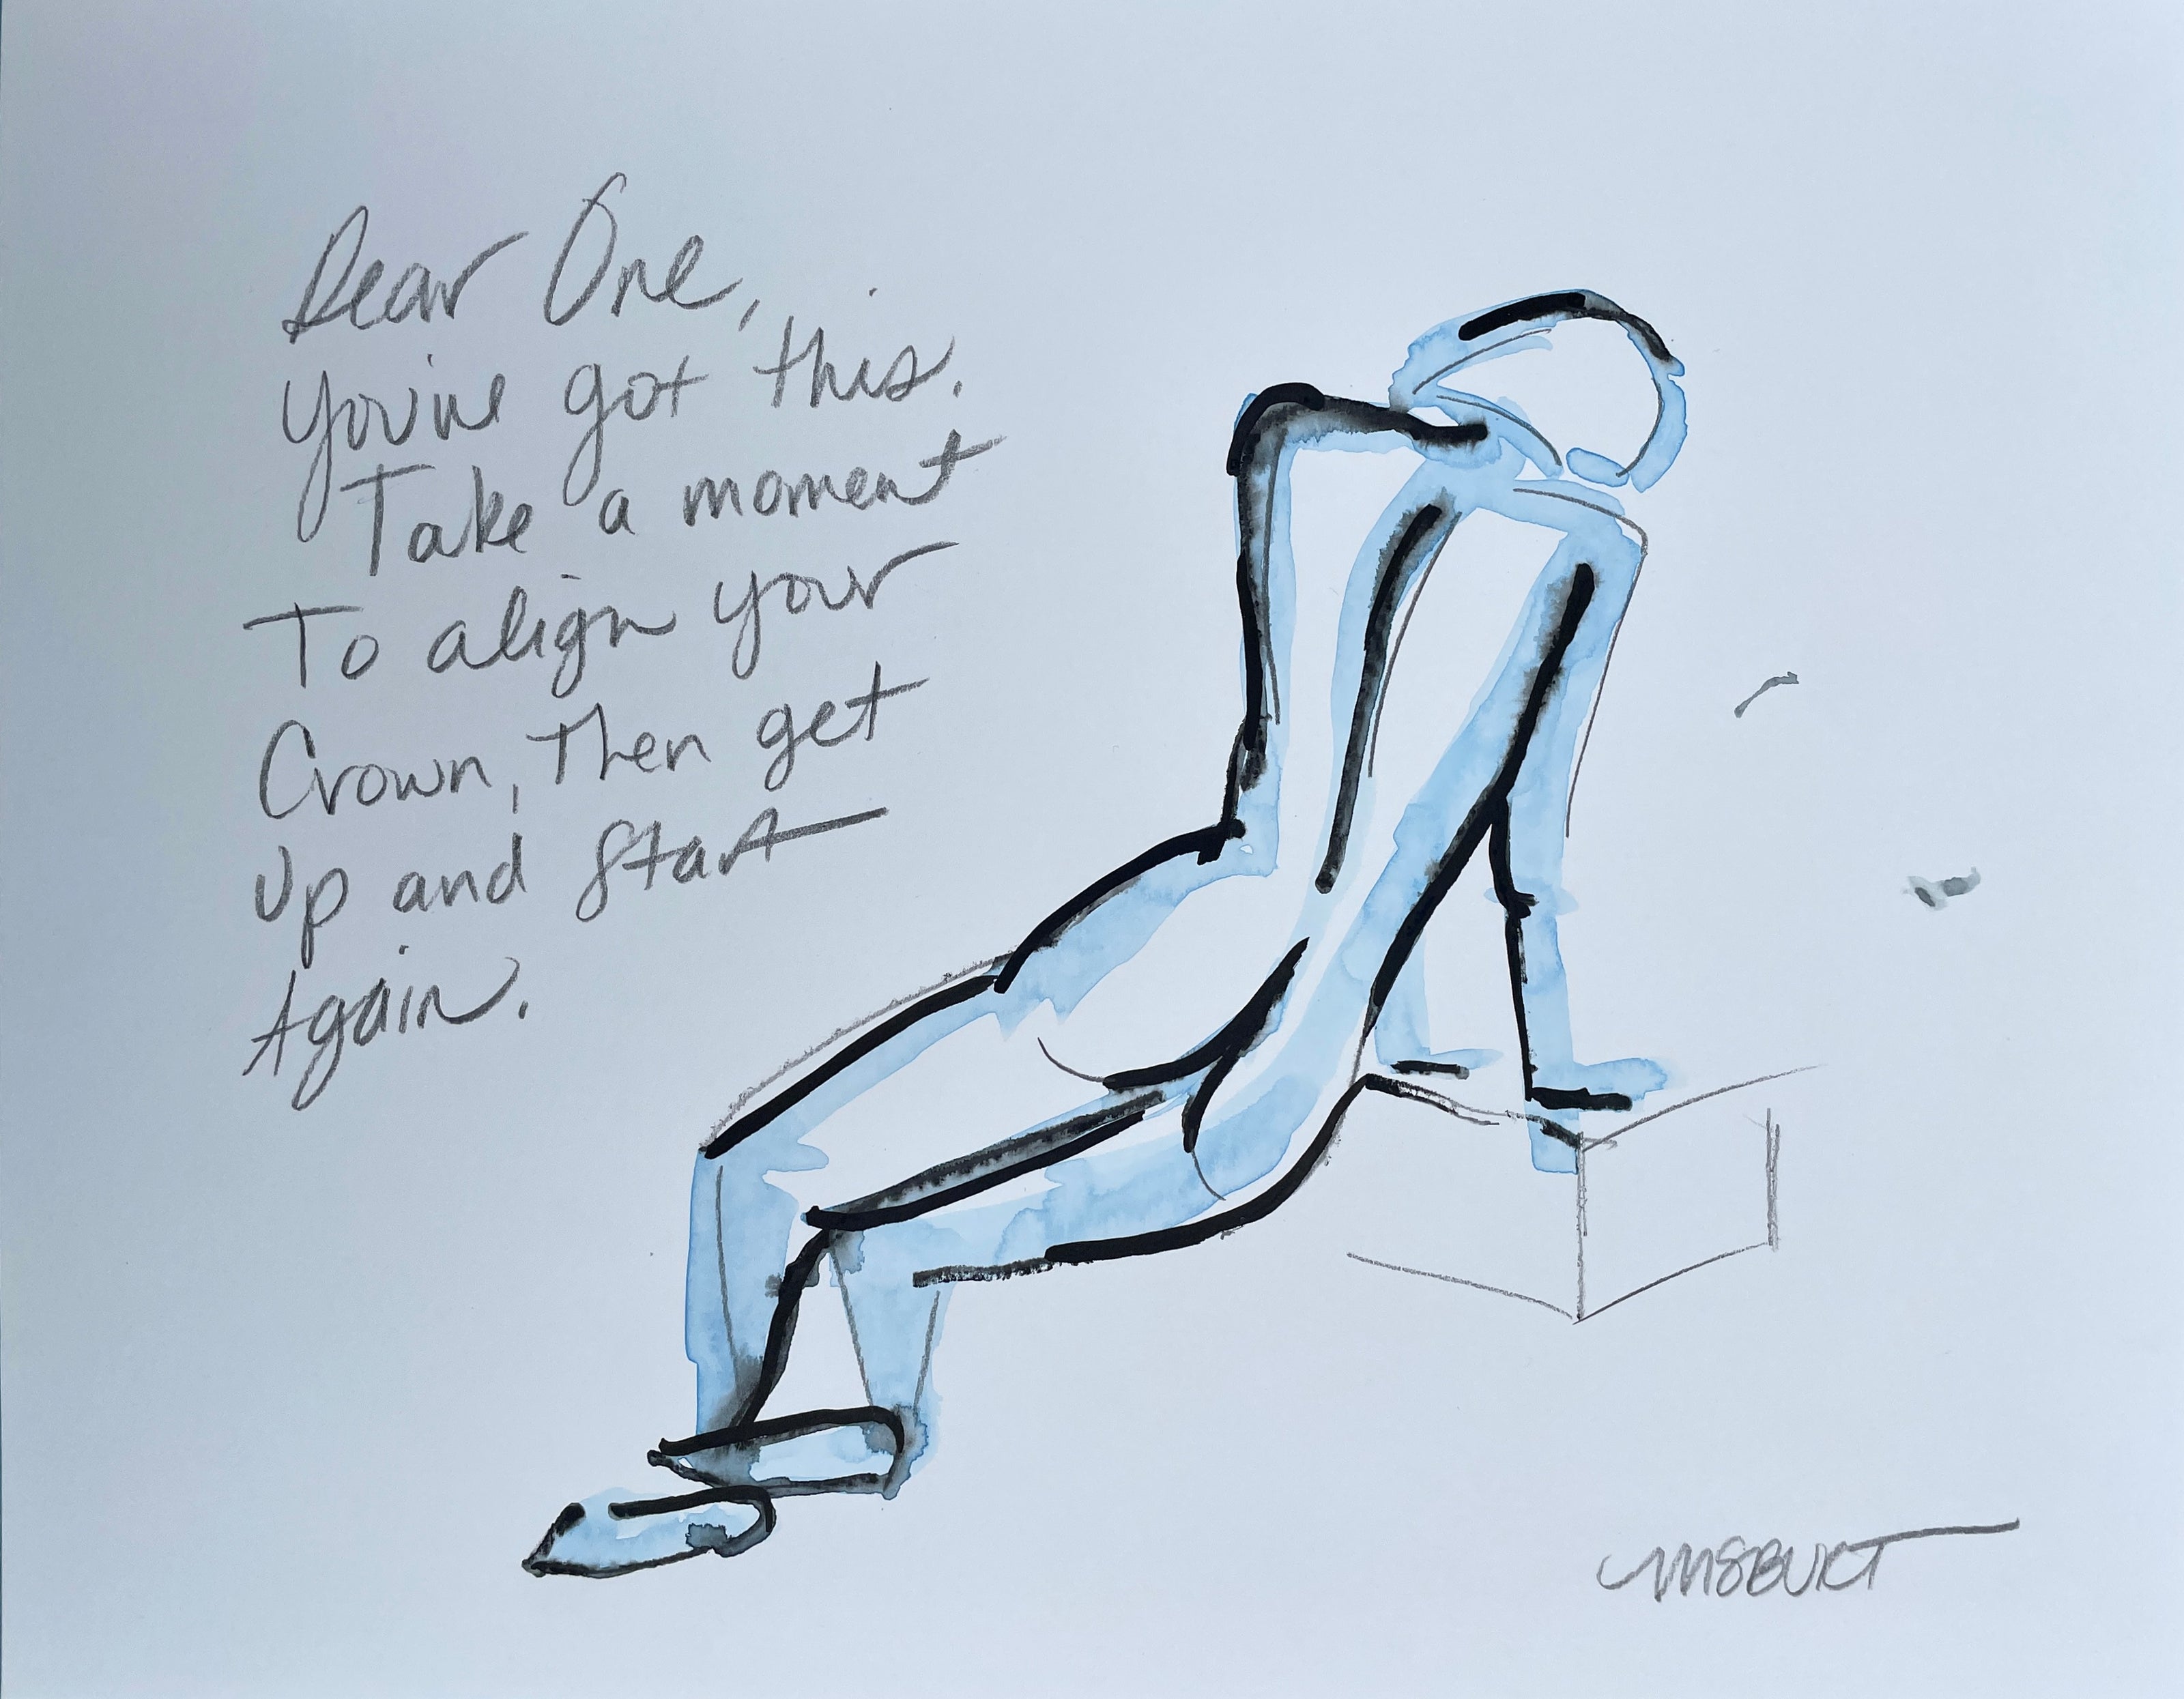 Dear One,
You've got this.
Take a moment
To align your
Crown, Then get
Up and Start
Again.
MSBURT